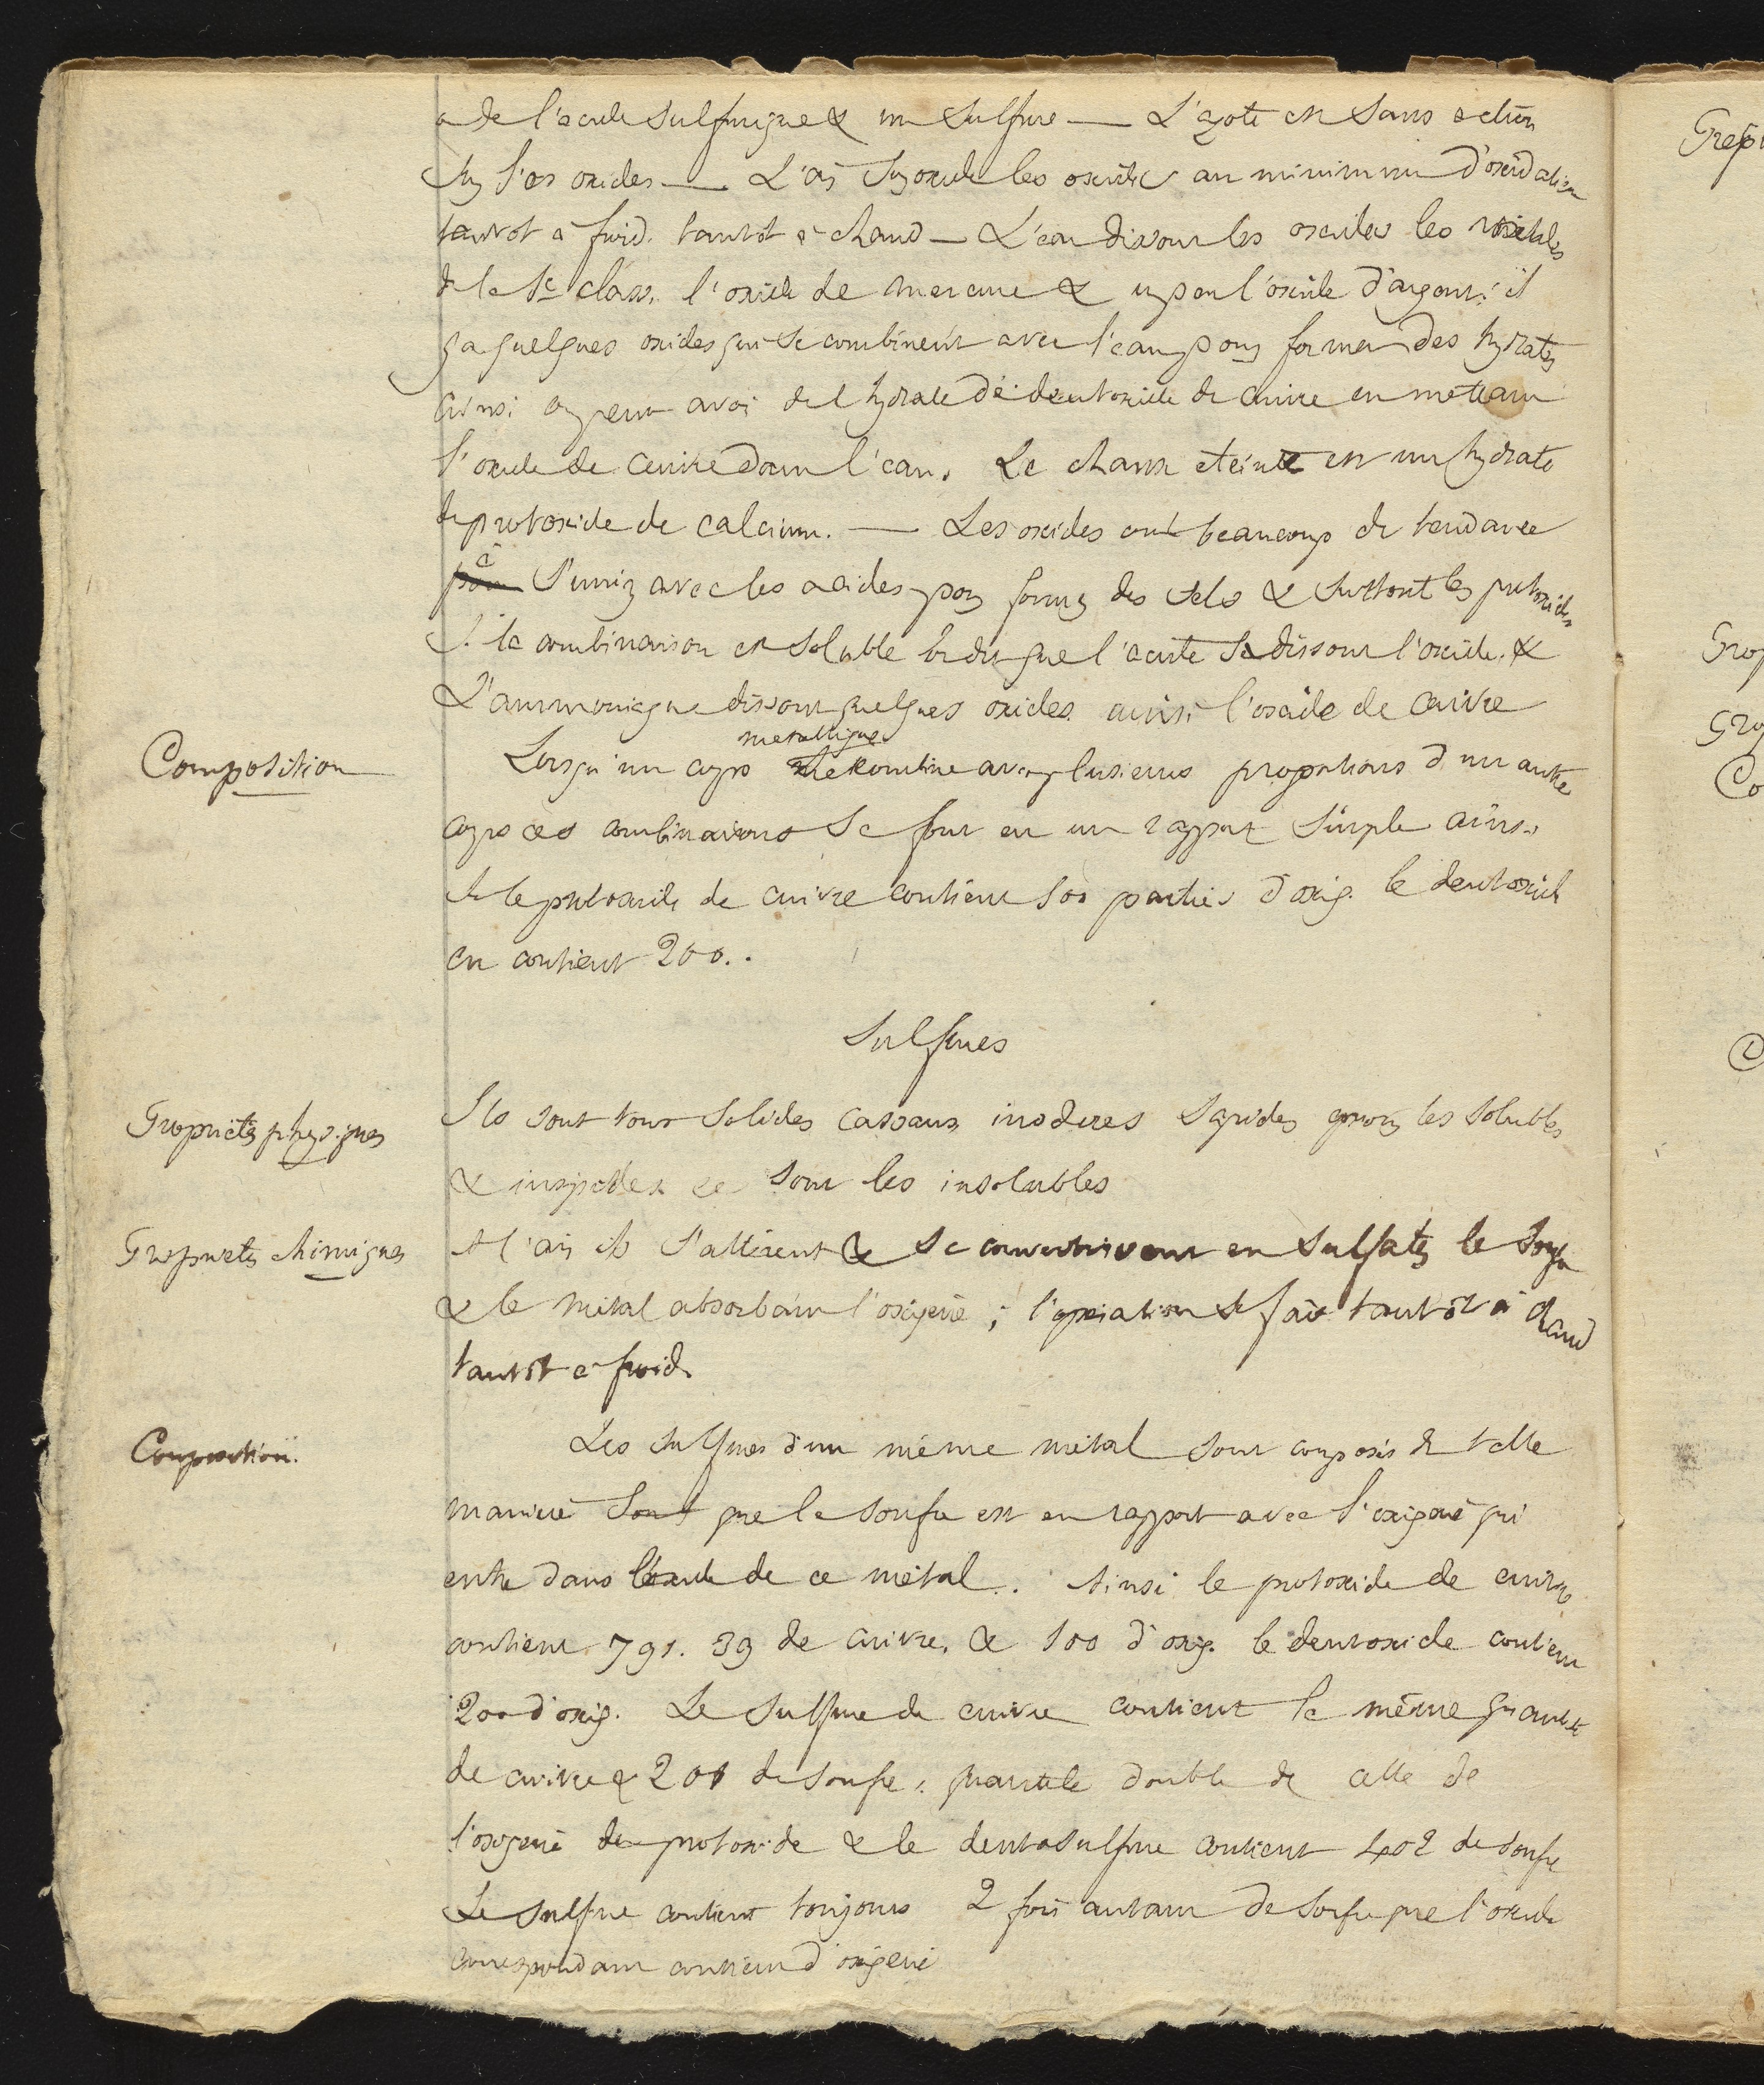 a de l'acide sulfurique & un sulfure — L'azote est sans action
sur les oxides — L'air suroxide les oxides au minimum d'oxidation
tantot à froid. tantot à chaud — L'eau dissout les oxides les
de la 1e class. l'oxide de mercure & un peu l'oxide d'argent. il
y a quelques oxides qui se combinent avec l'eau pour former des hydrates
ainsi on peut avoir de l'hydrate de deutoxide de cuivre en mettant
l'oxide de cuivre dans l'eau. La chaux eteinte est un hydrate
de protoxide de calcium. — Les oxides ont beaucoup de tendance
à
pour S'unir avec les acides pour former des sels & surtout les protoxides
Si la combinaison est soluble on dit que l'acide dissout l'oxide. &
L'ammoniaque dissout quelques oxides ainsi l'oxide de cuivre
Composition
metallique
Lorsqu'un corps se combine avec plusieurs proportions d'un autre
corps ces combinaisons se font en un rapport simple ainsi
si le protoxide de cuivre contient 100 parties d'oxig. le deutoxide
en contient 200..
Sulfures
Propriétés physiques
Ils sont tous solides cassans inodores sapides quand les solubles
& insipides ce sont les insolubles
Propriétés chimiques
A l'air ils s'altèrent & se convertissent en sulfates le soufre
& le métal absorbant l'oxigene ; l'opération se fait tantôt à chaud
tantôt a froid.
Composition.
Les sulfures d'un même métal sont composés de telle
maniere sont que le soufre est en rapport avec l'oxigene qui
entre dans l'oxide de ce métal.. Ainsi le protoxide de cuivre
contient 791. 39 de cuivre. & 100 d'oxig. le deutoxide contient
200 d'oxig. Le sulfure de cuivre contient la même quantité
de cuivre & 201 de soufre. quantité double de celle de
l'oxigene du protoxide & le deutosulfure contient 402 de soufre
Le sulfure contient toujours 2 fois autant de soufre que l'oxide
correspondant contient d'oxigene